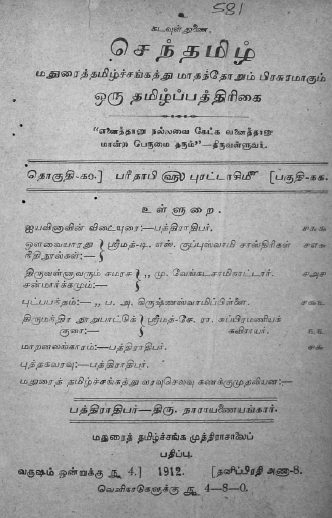 581
கடவுள் துணை.
செந்தமிழ்
மதுரைத்தமிழ்ச்சங்கத்து மாதந்தோறும் பிரசுரமாகும்
ஒரு தமிழ்ப்பத்திரிகை
"எனைத்தானு நல்லவை கேட்க வனைத்தானு
மான்ற பெருமை தரும்"—திருவள்ளுவர்.
தொகுதி-௧௦.] பரிதாபி ௵ புரட்டாசி௴ [பகுதி-௧௧.
உள்ளுறை.
ஐயவினாவின் விடையுரை:—பத்திராதிபர்.
ஔவையாரது நீதிநூல்கள்:— ஸ்ரீமத்-டி. எஸ். குப்புஸ்வாமி சாஸ்திரிகள்
திருவள்ளுவரும் சமரச சன்மார்க்கமும்:— ,, மு. வேங்கடசாமிநாட்டார்.
புட்பபந்தம்:— ,, ப. அ. கிருஷ்ணஸ்வாமிப்பிள்ளை.
திருமந்திர நூறுபாட்டுக் குரை:— ஸ்ரீமத்-சே. ரா. சுப்பிரமணியக் கவிராயர்.
மாறனலங்காரம்:—பத்திராதிபர்.
புத்தகவரவு:—பத்திராதிபர்.
மதுரைத் தமிழ்ச்சங்கத்து வரவுசெலவு கணக்குமுதலியன:—
பத்திராதிபர்—திரு. நாராயணையங்கார்.
மதுரைத் தமிழ்ச்சங்க முத்திராசாலைப்
பதிப்பு.
வருஷம் ஒன்றுக்கு ரூ 4.] 1912. [தனிப்பிரதி அணா-8.
வெளிநாடுகளுக்கு ரூ 4—8—0.